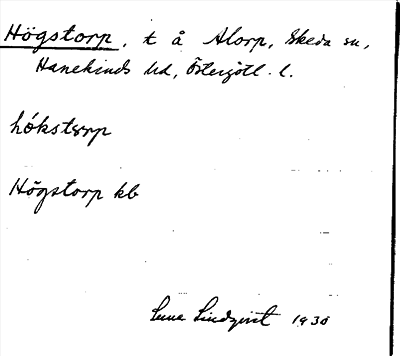 Högstorp, t å Alorp, Skeda sn,
Hanekinds hd, Östergötl. l.
hókstɤrp
Högstorp kb
Lindqvist 1930